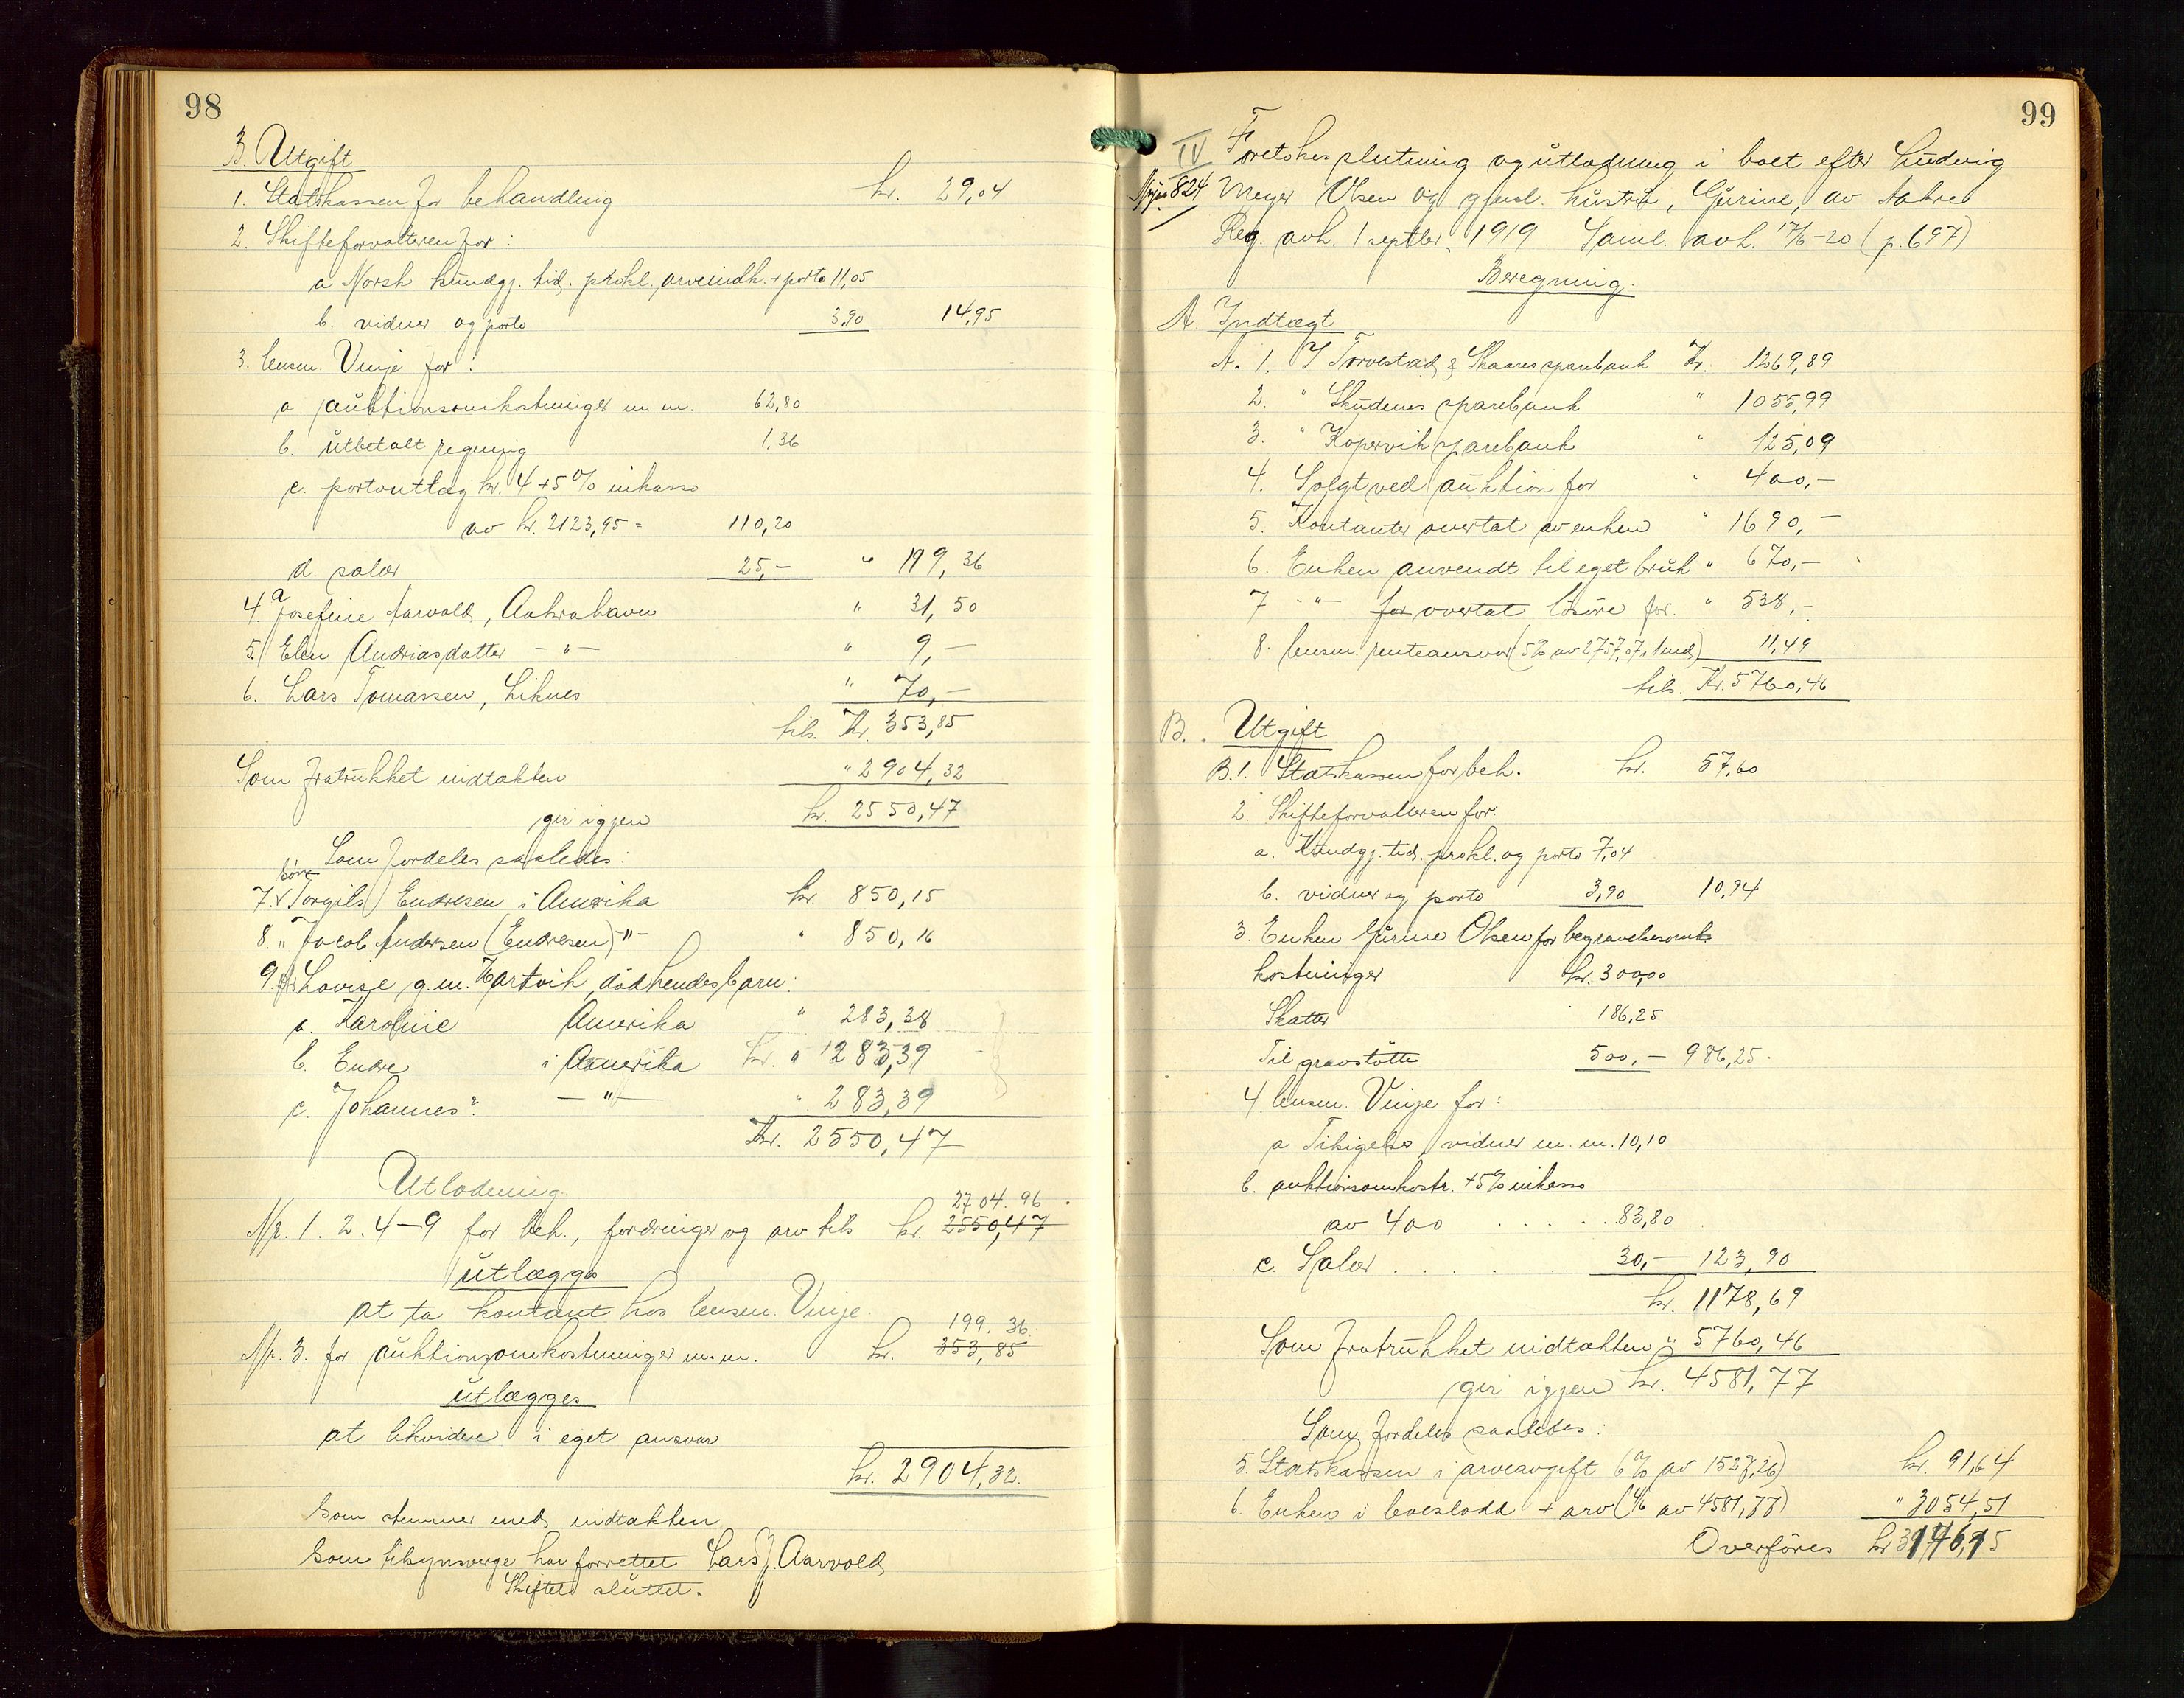 98
B. Utgift
1. Statskassen for behandling kr. 29,04
2. Skifteforvalteren for:
a Norsk kundgj. tid. prokl. arveindk. + porto 11,05
b. vidner og porto 3,90 14,95
3. lensm. Vinje for:
a. auktionsomkostninger m. m. 62,80
b. utbetalt regning 1,36
c. portoutlæg kr. 4 + 5% inkasso
av kr. 2123,95 = 110,20
d. salær 25,- " 199,36
4. a Josefine Aarvold, Aakrahavn " 31,50
5. Elen Andriasdatter - " - " 9,-
6. Lars Tomassen, Liknes " 70,-
tils. Kr. 353,85
Som fratrukket indtækten " 2904,32
gir igjen kr. 2550,47
Som fordeles saaledes:
7. Søn Torgils Endresen i Amerika kr. 850,15
8. " Jacob Andersen (Endresen) - " - " 850,16
9. Lovise g.m. Hartvik, død hendes barn:
a. Karoline Amerika " 283,38
b. Endre i Amerika kr. " 283,39
c. Johannes - " - " 283,39
Kr. 2550,47
Utlodning
2704.96
Nr. 1. 2. 4-9 for beh., fordringer og arv tils kr. 2550,47
utlægges
at ta kontant hos lensm. Vinje.
199.36.
Nr. 3. for auktionsomkostninger m.m. kr. 353,85
utlægges
at likvidere i eget ansvar
kr. 2904,32.
Som stemmer med indtækten
Som tilsynsverge har forrettet Lars J. Aarvold
Skiftet sluttet.
99
IV Foretokes slutning og utlodning i boet efter Ludvig
824 Meyer Olsen og gjenl. hustru, Gurine, av Aakre
Reg. avh. 1 septbr. 1919. Saml. avh. 17/6-20 (p. 697)
Beregning.
A. Indtægt
A. 1. I Torvestad & Skaares sparebank Kr. 1269,89
2. " Skudenes sparebank " 1055,99
3. " Kopervik sparebank " 125,09
4. Solgt ved auktion for " 400,-
5. Kontanter overtat av enken " 1690,-
6. Enken anvendt til eget bruk " 670,-
7 - " - for overtat løsøre for. " 538,-
8. lensm. renteansvar (5% av 2757,07 i 1 md) 11,49
tils. Kr. 5760,46
B. Utgift
B.1. Statskassen for beh. kr. 57,60
2. Skifteforvalteren for:
a. Kundgj. tid. prokl. og porto 7,04
b. vidner og porto 3,90 10,94
3. Enken Gurine Olsen for begravelsesom-
kostninger kr. 300,00
Skatter 186,25
Til gravstøtte 500,- 986,25.
4. lensm. Vinje for:
a Tilsigelse, vidner m. m. 10,10
b. auktionsomkostn. + 5% inkasso
av 400 . . . . . 83,80
c. Salær . . . . 30,- 123,90
kr. 1178,69
Som fratrukket indtækten " 5760,46
gir igjen kr. 4581,77
Som fordeles saaledes:
5. Statskassen i arveavgift 6% av 1527,26) kr. 91,64
6. Enken i boeslodd + arv (4/6 av 4581,77) " 3054,51
Overføres kr 3146,15